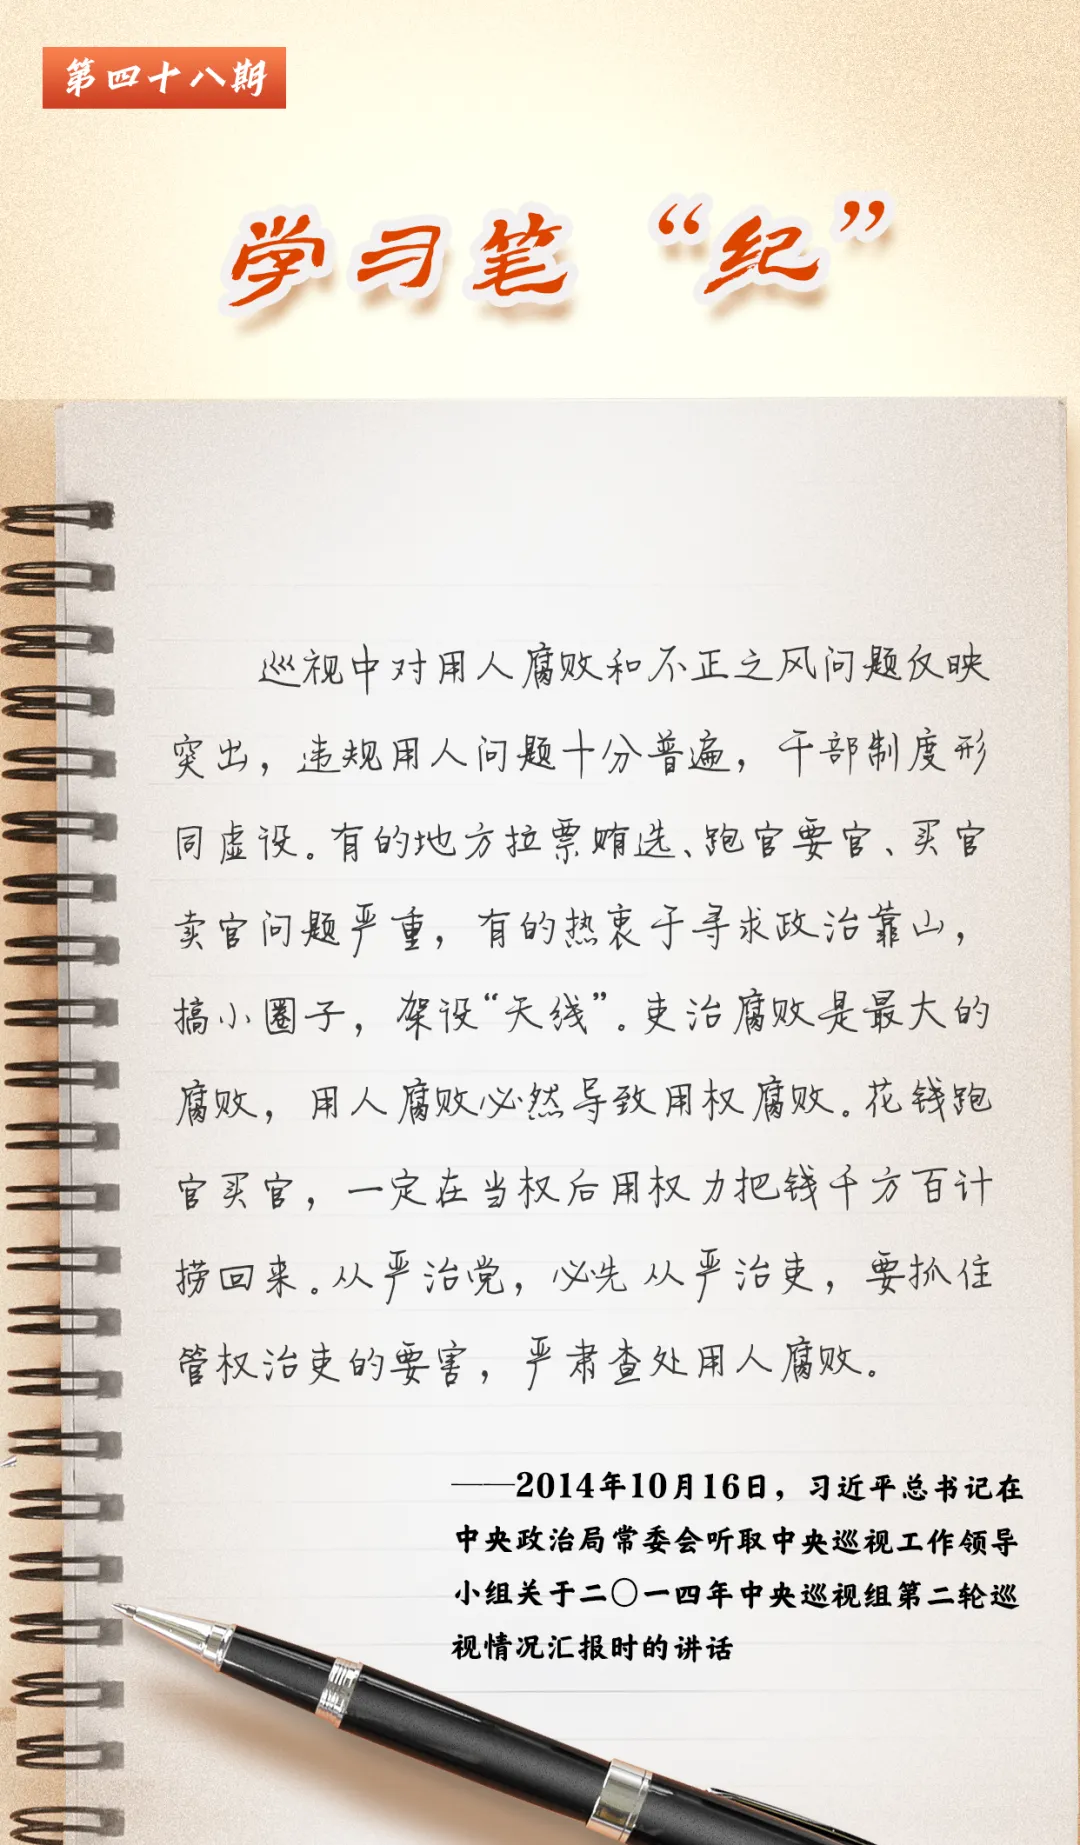 第四十八期
学习笔“纪”
巡视中对用人腐败和不正之风问题反映
突出，违规用人问题十分普遍，干部制度形
同虚设。有的地方拉票贿选、跑官要官、买官
卖官问题严重，有的热衷于寻求政治靠山，
搞小圈子，架设“天线”。吏治腐败是最大的
腐败，用人腐败必然导致用权腐败。花钱跑
官买官，一定在当权后用权力把钱千方百计
捞回来。从严治党，必先从严治吏，要抓住
管权治吏的要害，严肃查处用人腐败。
——2014年10月16日，习近平总书记在
中央政治局常委会听取中央巡视工作领导
小组关于二〇一四年中央巡视组第二轮巡
视情况汇报时的讲话